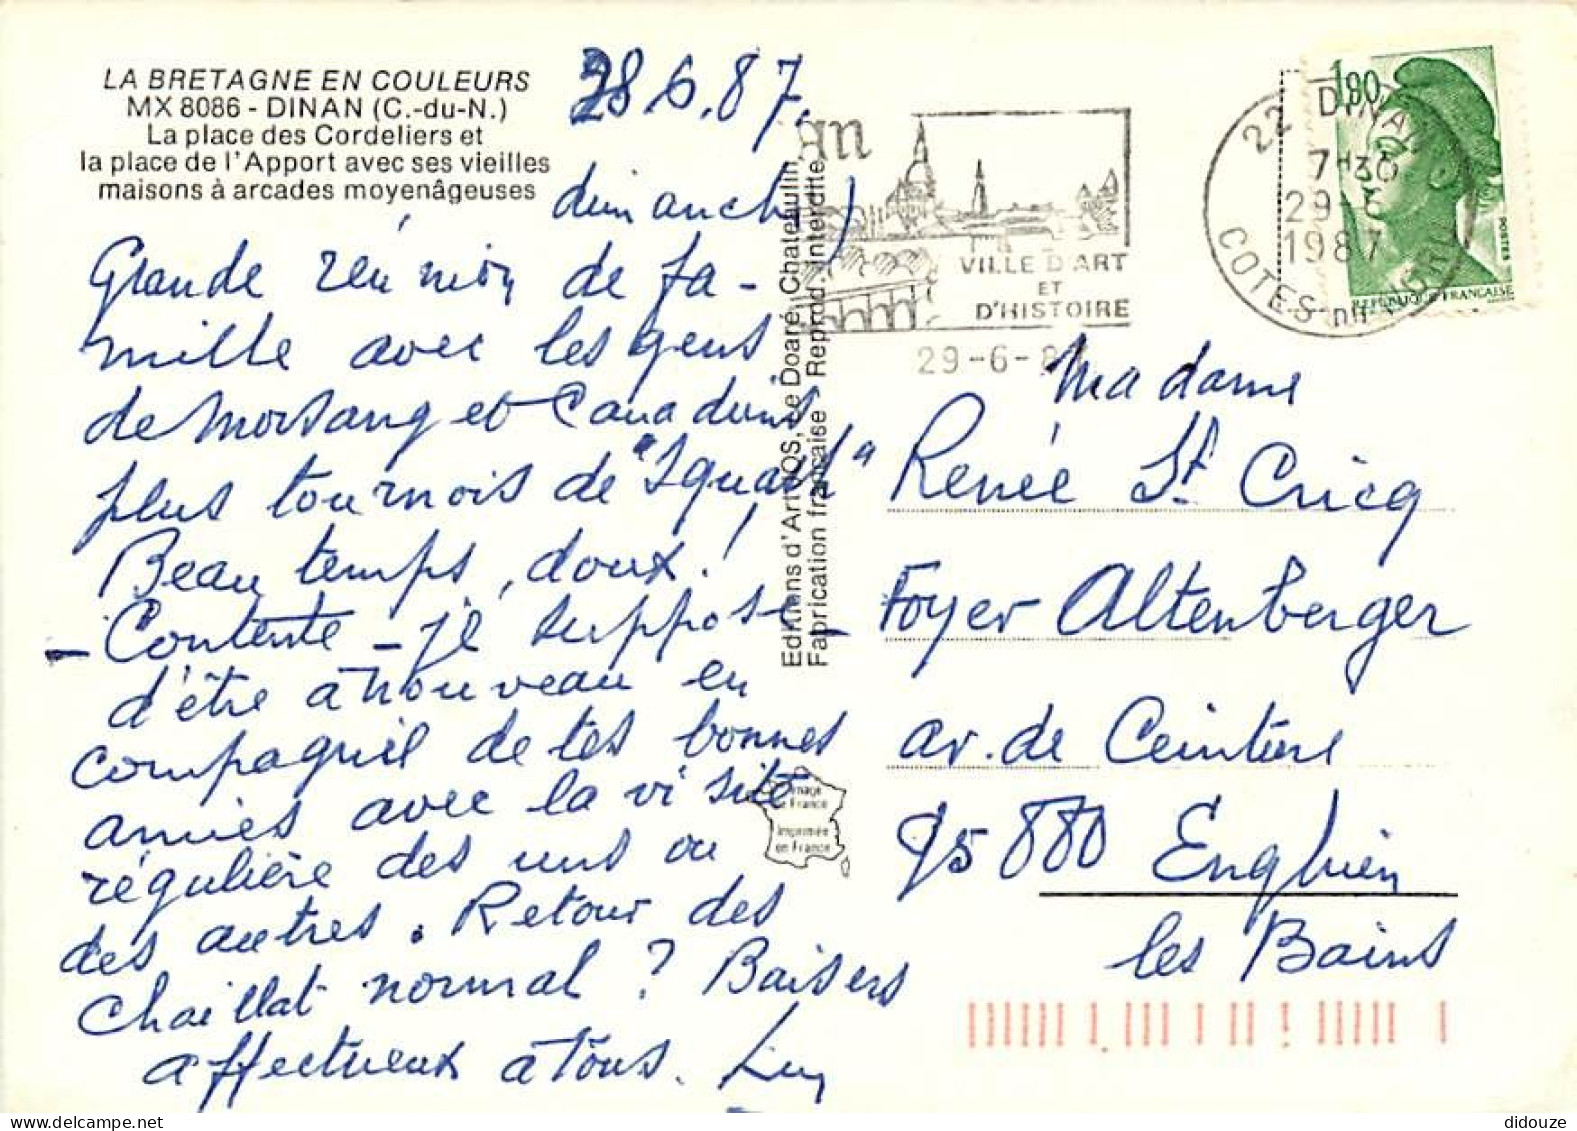 LA BRETAGNE EN COULEURS
MX 8086 - DINAN (C.-du-N.)
La place des Cordeliers et
la place de l'Apport avec ses vieilles
maisons à arcades moyenâgeuses
28.6.87.
dimanche
Grande réunion de fa-
mille avec les gens
de Morsang et Canadiens
plus tournois de "Squash"
Beau temps, doux !
- Contente - je suppose -
d'être à nouveau en
compagnie de tes bonnes
amies avec la visite
régulière des uns ou
des autres. Retour des
Chaillat normal ? Baisers
affectueux à tous.
Editions d'Art JOS, Le Doaré, Chateaulin
Fabrication française Reprod. Interdite
Image
de France
Imprimée
en France
VILLE D'ART
ET
D'HISTOIRE
29-6-8
22 DINAN
7H30
29-6
1987
COTES DU NORD
1,90
POSTES
REPUBLIQUE FRANÇAISE
Madame
Renée St Cricq
Foyer Altenberger
av. de Ceinture
95 880 Enghien
les Bains
didouze